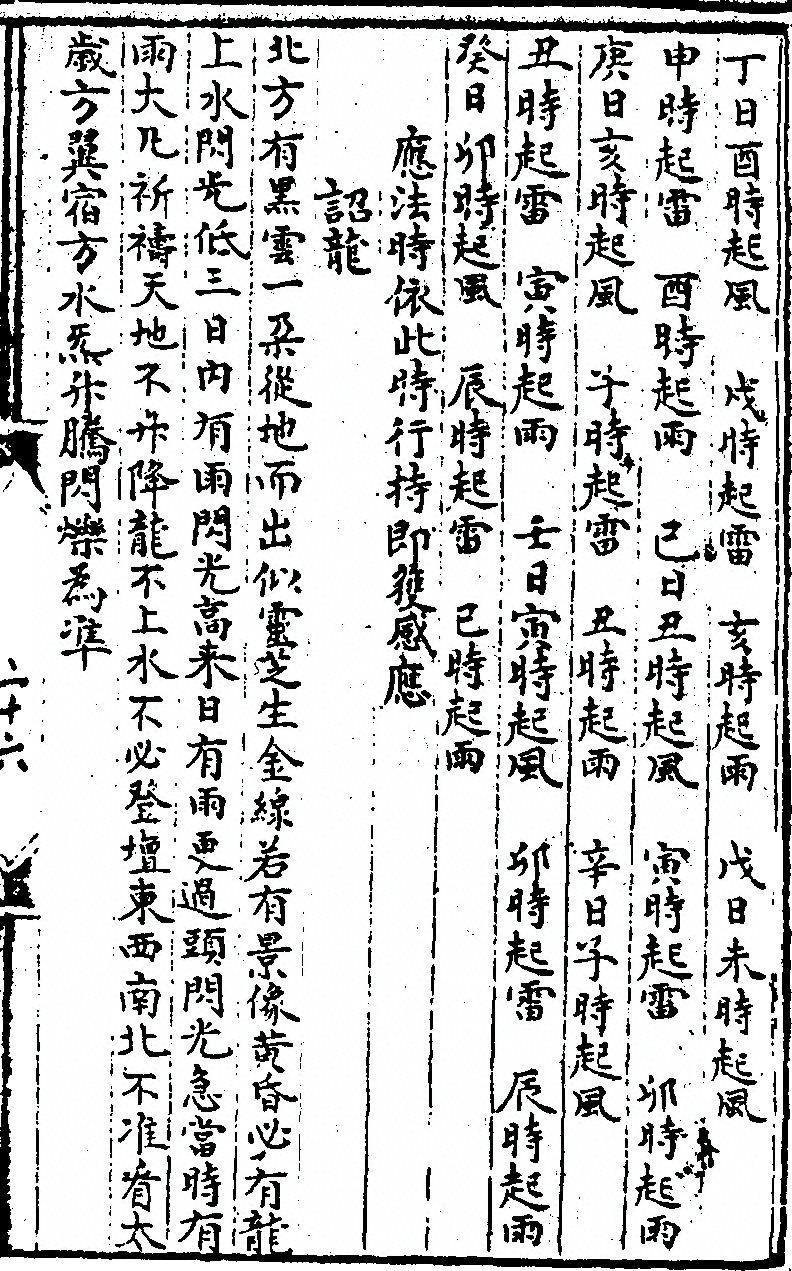 丁日酉時起風　戌時起雷　亥時起雨　戊日未時起風
申時起雷　酉時起雨　己日丑時起風　寅時起雷　卯時起雨
庚日亥時起風　子時起雷　丑時起雨　辛日子時起風
丑時起雷　寅時起雨　壬日寅時起風　卯時起雷　辰時起雨
癸日卯時起風　辰時起雷　巳時起雨
應法時依此時行持即獲感應
詔龍
北方有黑雲一朶從地而出似靈芝生金線若有景像黄昏必有龍
上水閃光低三日内有雨閃光高来日有雨更過頭閃光急當時有
雨大凡祈禱天地不升降龍不上水不必登壇東西南北不准看太
歲方翼宿方水炁升騰閃爍為准
二十六